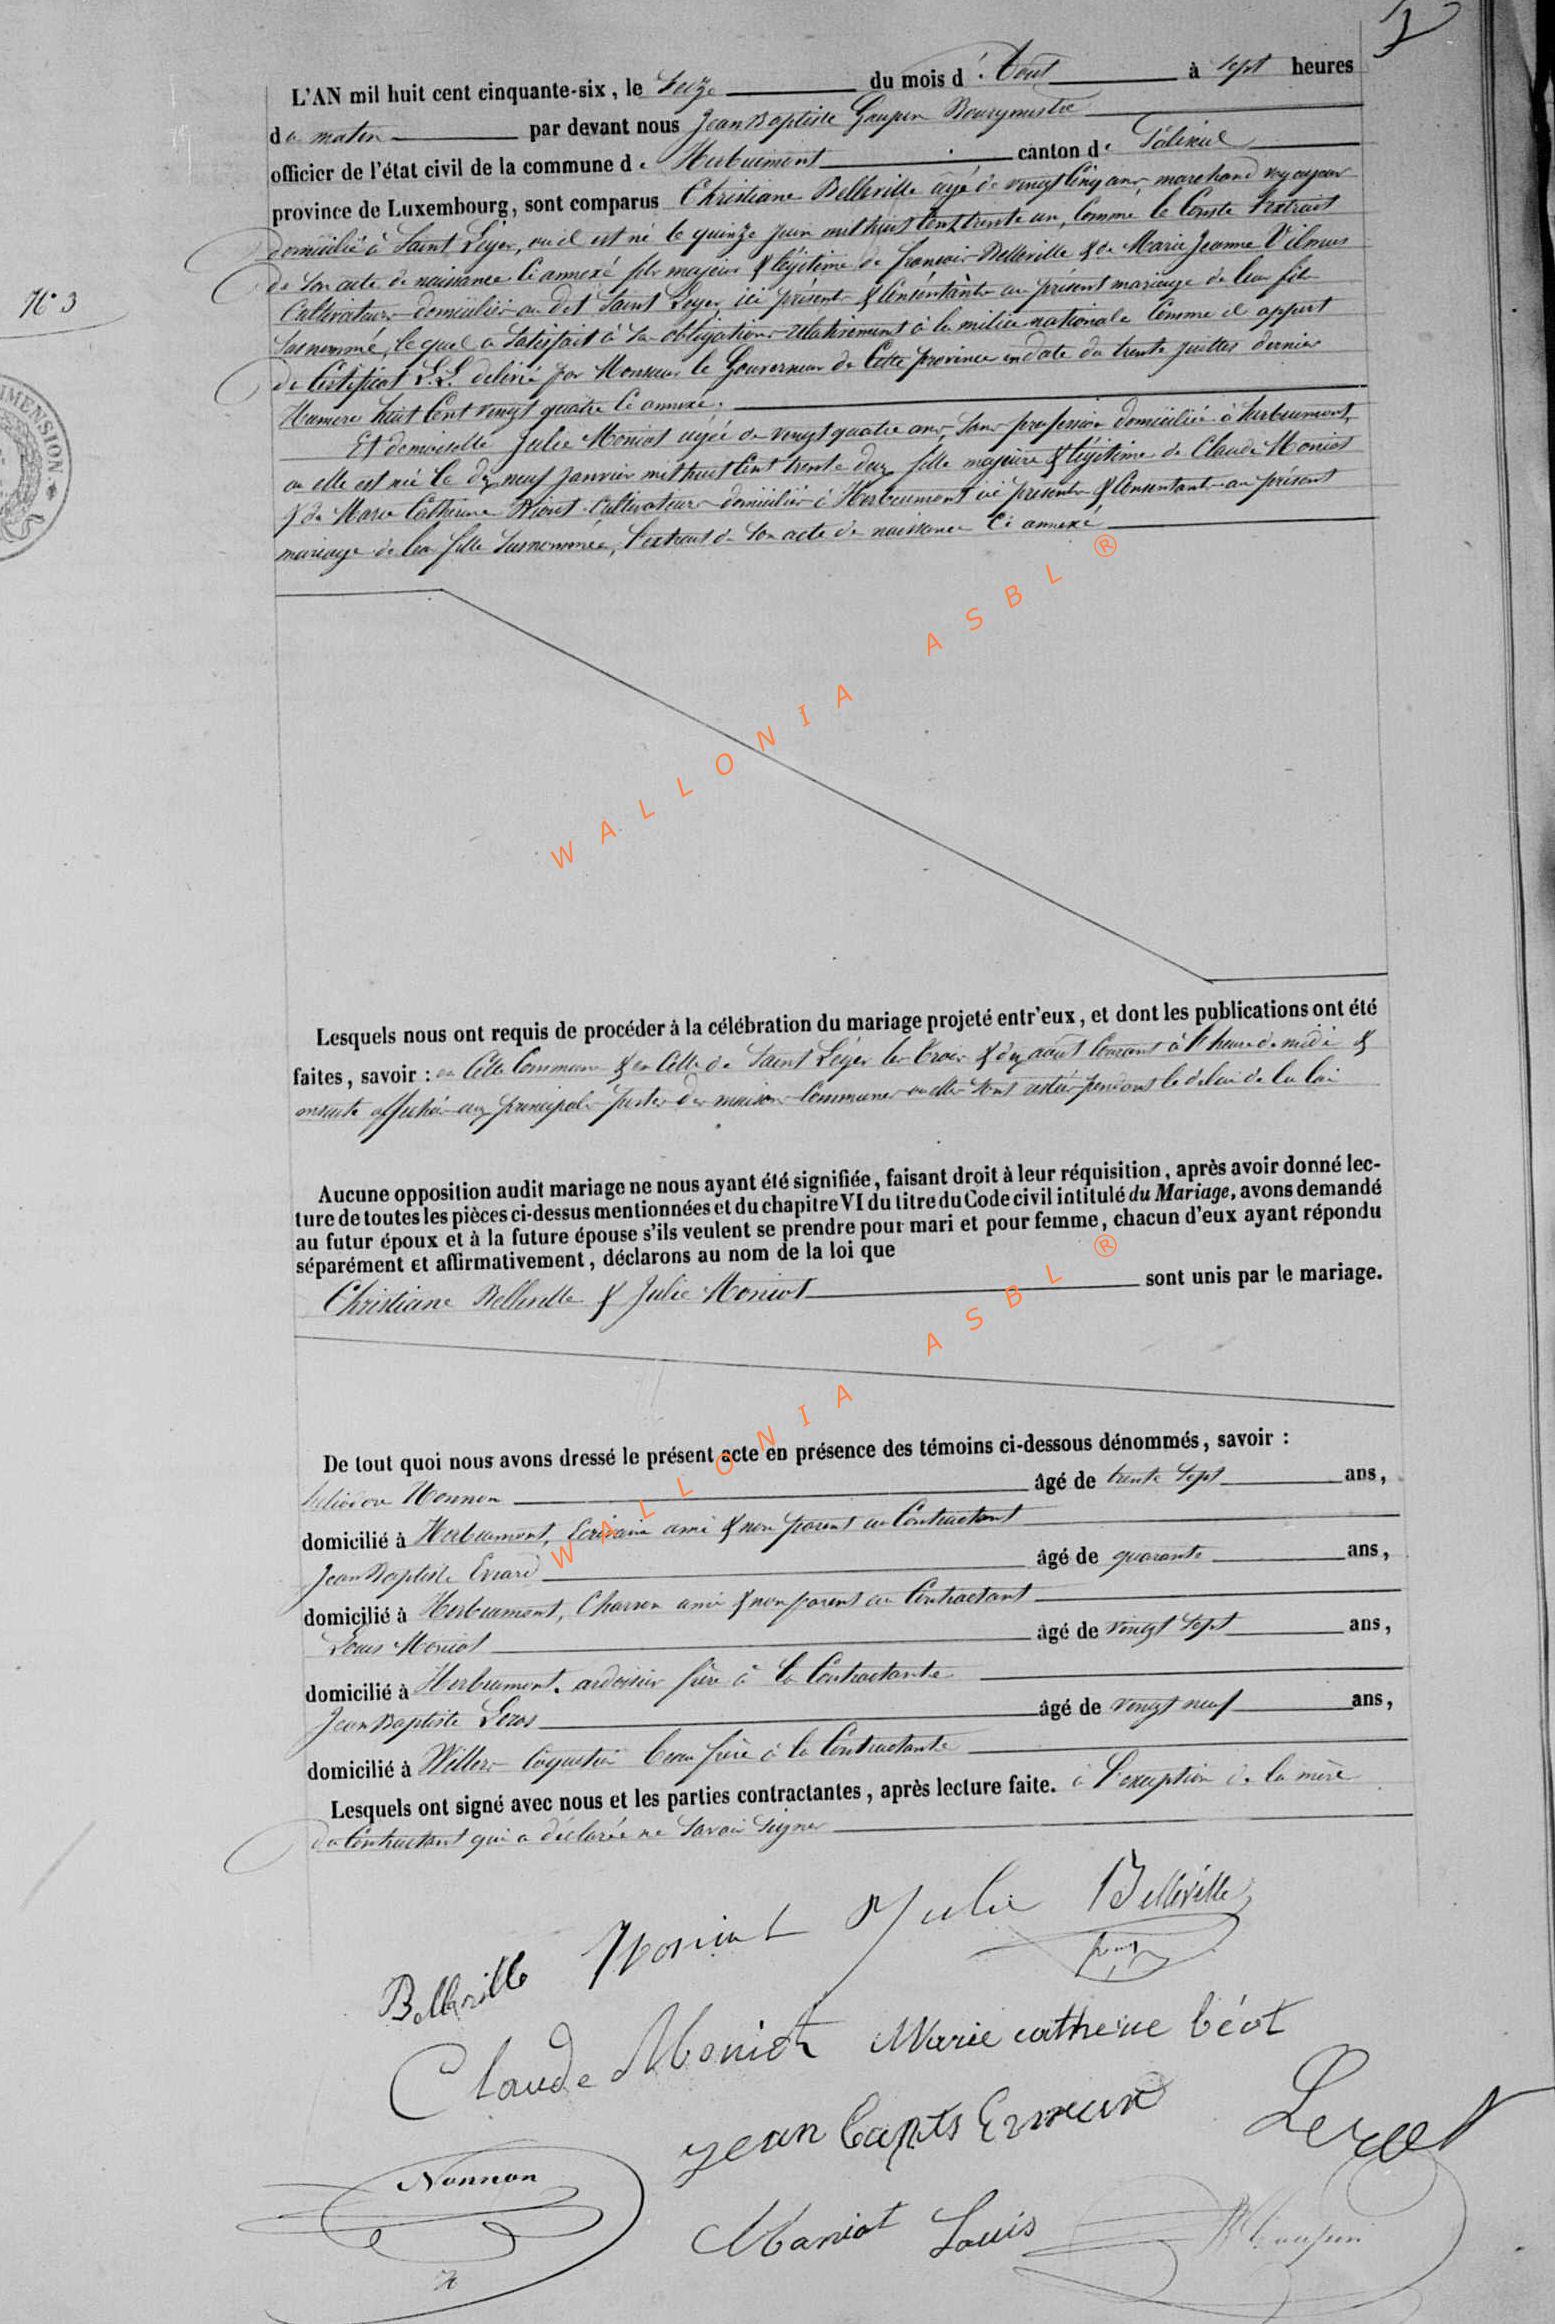 L'AN mil huit cent cinquante-six, le Seize du mois d'Aout à sept heures
du matin par devant nous Jean Baptiste Gaupin Bourgmestre
officier de l'état civil de la commune de Herbeumont canton de Paliseul
province de Luxembourg, sont comparus Christiane Belleville agé de vingt Cinq ans, marchand voyageur
domicilié à Saint Léger, ou il est né le quinze juin mil huit Cent trente un, Comme le Conste l'extrait
de son acte de naissance Ci annexé fils majeur & légitime de françois Belleville & de Marie Jeanne Vilmus
N° 3
Cultivateurs domiciliés au dit Saint Léger, ici présents & Consentants au présent mariage de leur fils
susnommé, lequel a satisfait à ses obligations relativement à la milice nationale Comme il appert
du Certificat L.L. délivré par Monsieur le Gouverneur de Cette province en date du trente juillet dernier
Numero huit Cent vingt quatre Ci annexé.
Et demoiselle Julie Moniot agée de vingt quatre ans, sans profession domiciliée à herbeumont,
ou elle est née le dix neuf janvier mil huit Cent trente deux fille majeure & légitime de Claude Moniot
& de Marie Catherine Cultivateurs domiciliés à Herbeumont ici présents & Consentants au présent
mariage de leur fille susnommée, l'extrait de son acte de naissance Ci annexé
Lesquels nous ont requis de procéder à la célébration du mariage projeté entr'eux, et dont les publications ont été
faites, savoir : en Cette Commune & en Celle de Saint Léger les trois & dix août Courant à l'heure de midi &
ensuite affichées aux principales portes des maisons Communes ou elles sont restées pendant le délai de la loi
Aucune opposition audit mariage ne nous ayant été signifiée, faisant droit à leur réquisition, après avoir donné lec-
ture de toutes les pièces ci-dessus mentionnées et du chapitre VI du titre du Code civil intitulé du Mariage, avons demandé
au futur époux et à la future épouse s'ils veulent se prendre pour mari et pour femme, chacun d'eux ayant répondu
séparément et affirmativement, déclarons au nom de la loi que
Christiane Belleville & Julie Moniot sont unis par le mariage.
De tout quoi nous avons dressé le présent acte en présence des témoins ci-dessous dénommés, savoir :
Nonnon âgé de trente sept ans,
domicilié à Herbeumont, Ecrivain ami & non parent au Contractant
Jean Baptiste Evrard âgé de quarante ans,
domicilié à Herbeumont, Charron ami & non parent au Contractant
Louis Moniot âgé de vingt sept ans,
domicilié à Herbeumont, ardoisier frère à la Contractante
Jean Baptiste âgé de vingt neuf ans,
domicilié à beau frère à la Contractante
Lesquels ont signé avec nous et les parties contractantes, après lecture faite. à l'exception de la mère
du Contractant qui a déclarée ne savoir signer
Belleville Moniot Julie Belleville
Claude Moniot Marie catherine béot
jean bapts
Nonnon
Moniot Louis
WALLONIA ASBL ®
WALLONIA ASBL ®